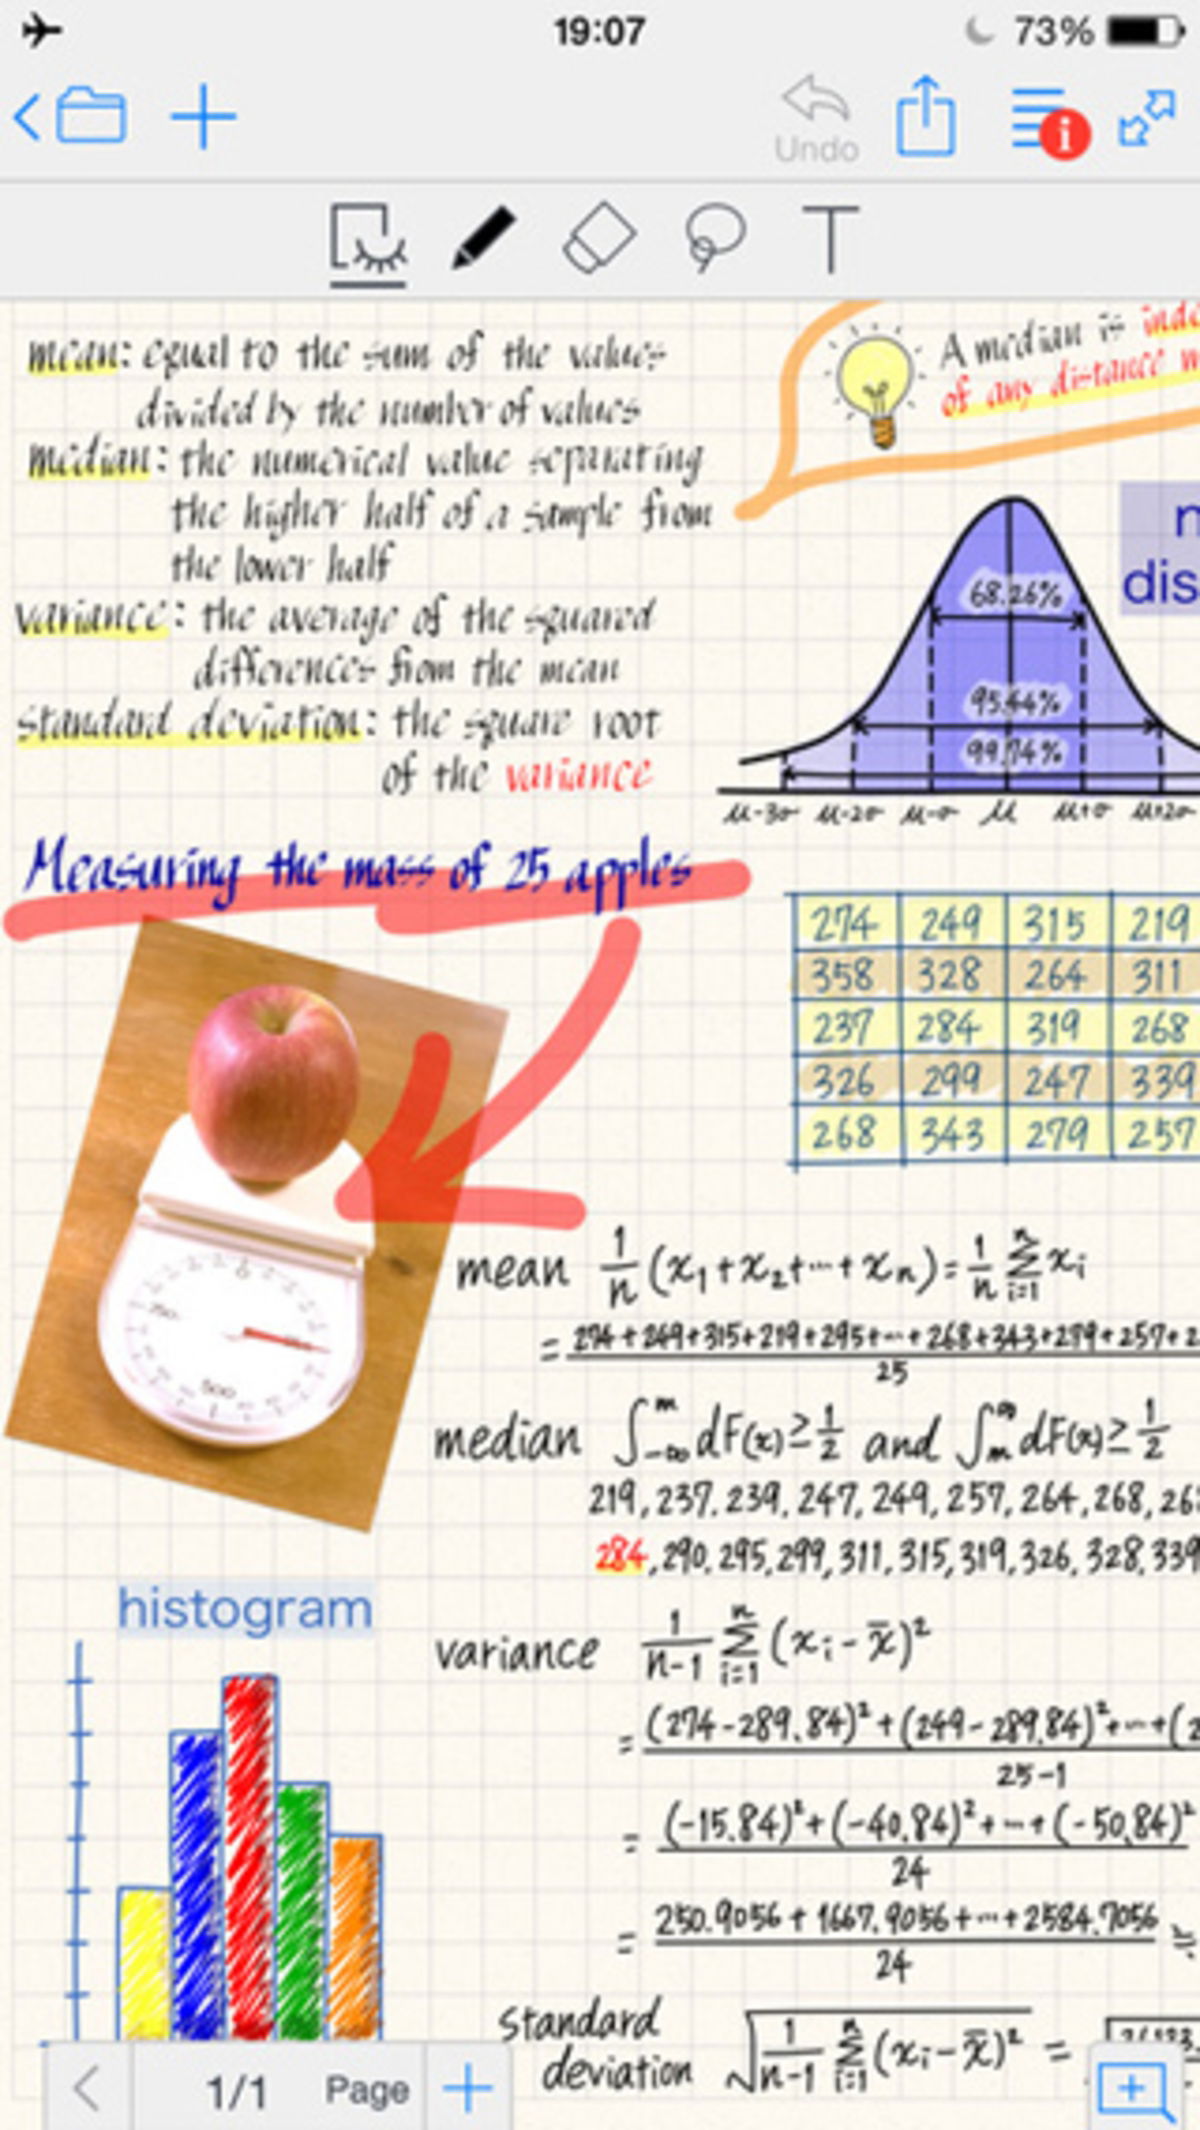 19:07
73%
Undo
i
T
mean: equal to the sum of the values
divided by the number of values
median: the numerical value separating
the higher half of a sample from
the lower half
variance: the average of the squared
differences from the mean
standard deviation: the square root
of the variance
A median is
of any distance
68.26%
95.44%
99.74%
μ-3σ μ-2σ μ-σ μ μ+σ μ+2σ
Measuring the mass of 25 apples
274 249 315 219
358 328 264 311
237 284 319 268
326 299 247 339
268 343 279 257
0
750
500
mean 1/n (x₁+x₂+…+xₙ) = 1/n Σⁿᵢ₌₁ xᵢ
= 274+249+315+219+295+…+268+343+279+257+2
25
median ∫₋∞ᵐ dF(x) ≥ 1/2 and ∫ₘ∞ dF(x) ≥ 1/2
219, 237, 239, 247, 249, 257, 264, 268, 26
284, 290, 295, 299, 311, 315, 319, 326, 328, 339
histogram
variance 1/(n-1) Σⁿᵢ₌₁ (xᵢ - x̄)²
= (274-289.84)² + (249-289.84)² + … + (2
25-1
= (-15.84)² + (-40.84)² + … + (-50.84)²
24
= 250.9056 + 1667.9056 + … + 2584.7056 ≒
24
standard
deviation √(1/(n-1) Σⁿᵢ₌₁ (xᵢ - x̄)²) =
1/1 Page